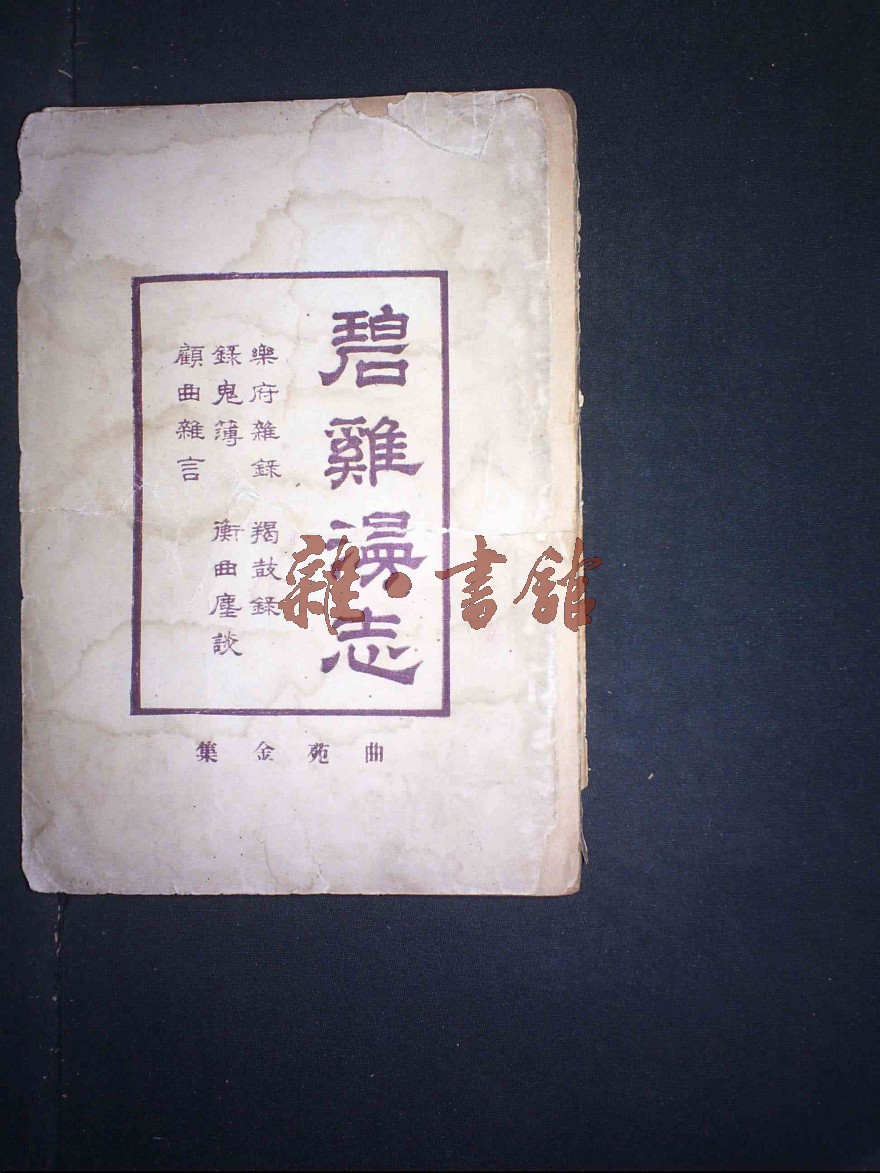 碧雞漫志
樂府雜錄 羯鼓錄
錄鬼簿 衡曲麈談
顧曲雜言
曲苑金集
雜·書館